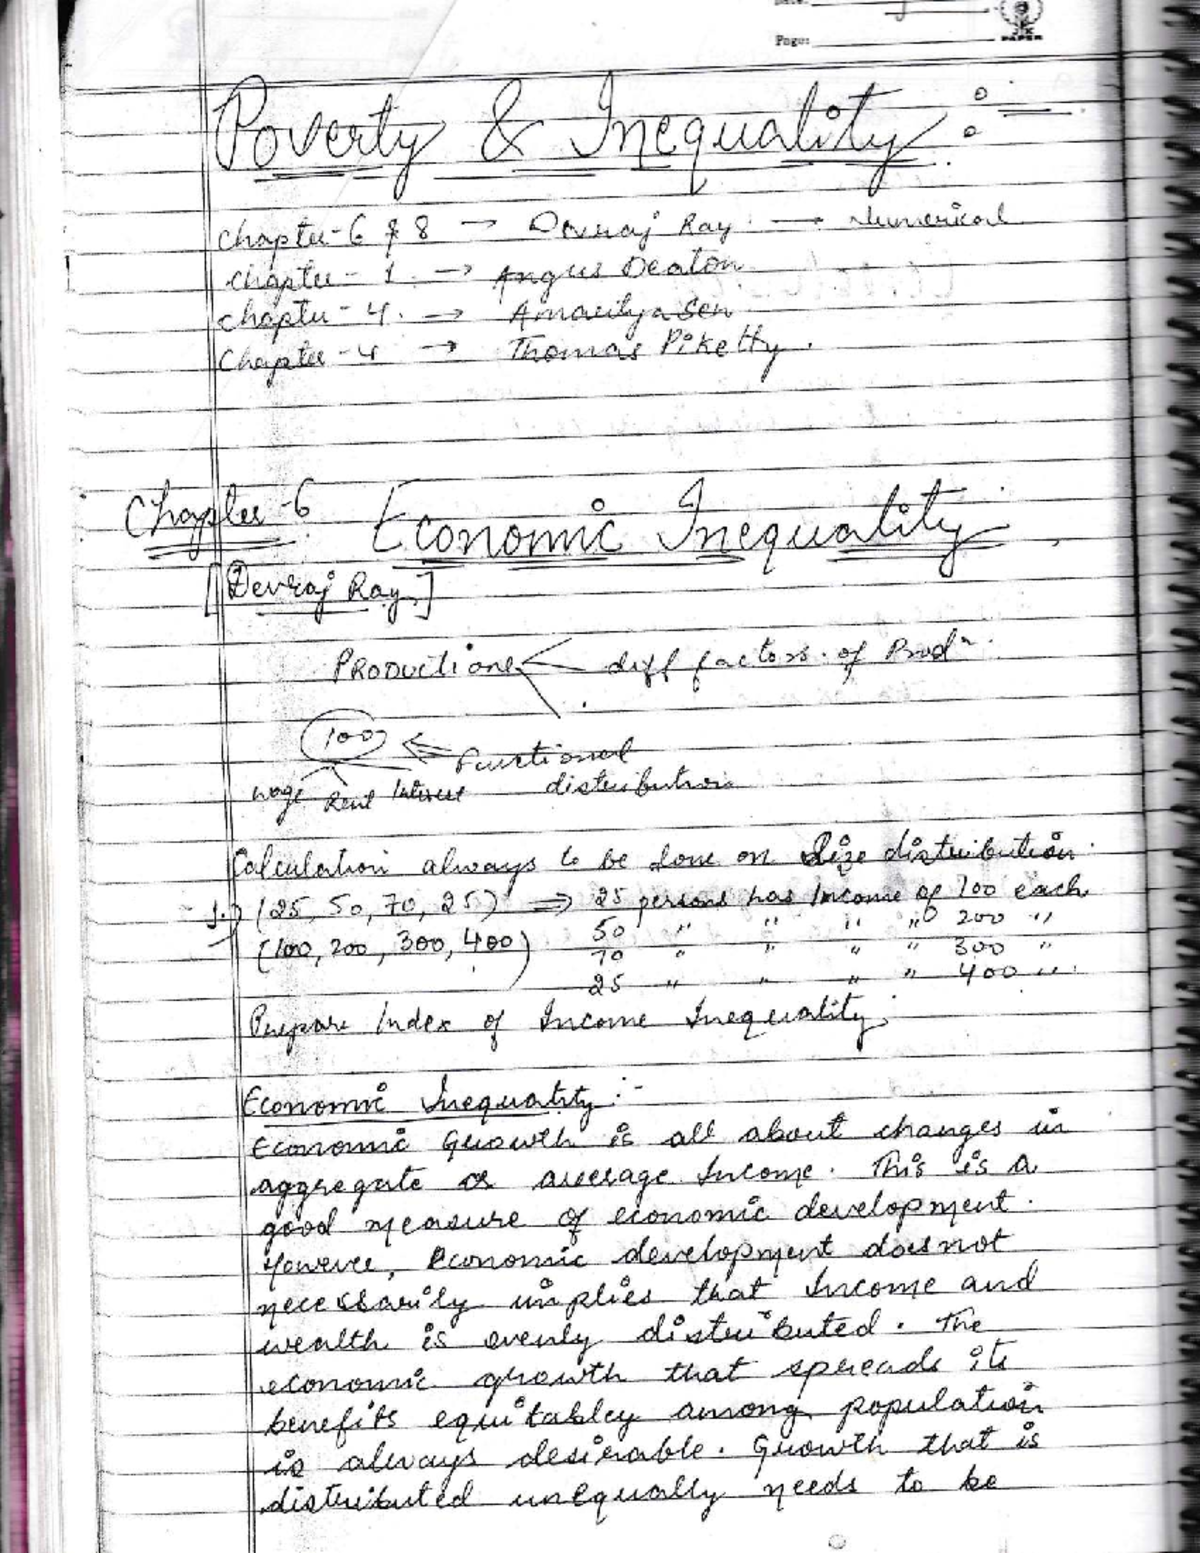 Date:
Page:
JK
PAPER
Poverty & Inequality :-
Chapter-6 & 8 → Devraj Ray → Numerical
Chapter - 1. → Angus Deaton
Chapter - 4. → Amartya Sen
Chapter - 4 → Thomas Piketty.
Chapter-6 Economic Inequality
[Devraj Ray]
PRODUCTION diff factors of Prodⁿ.
100 ⇐ Functional
wage Rent Interest distribution
Calculation always to be done on Size distribution.
1.) (25, 50, 70, 25) ⇒ 25 persons has Income of 100 each
(100, 200, 300, 400) 50 " " " " 200 "
70 " " " " 300 "
25 " " " " 400 "
Prepare Index of Income Inequality.
Economic Inequality :-
Economic Growth is all about changes in
aggregate or average Income. This is a
good measure of economic development.
However, Economic development doesnot
necessarily implies that Income and
wealth is evenly distributed. The
economic growth that spreads its
benefits equitabley among population
is always desirable. Growth that is
distributed unequally needs to be